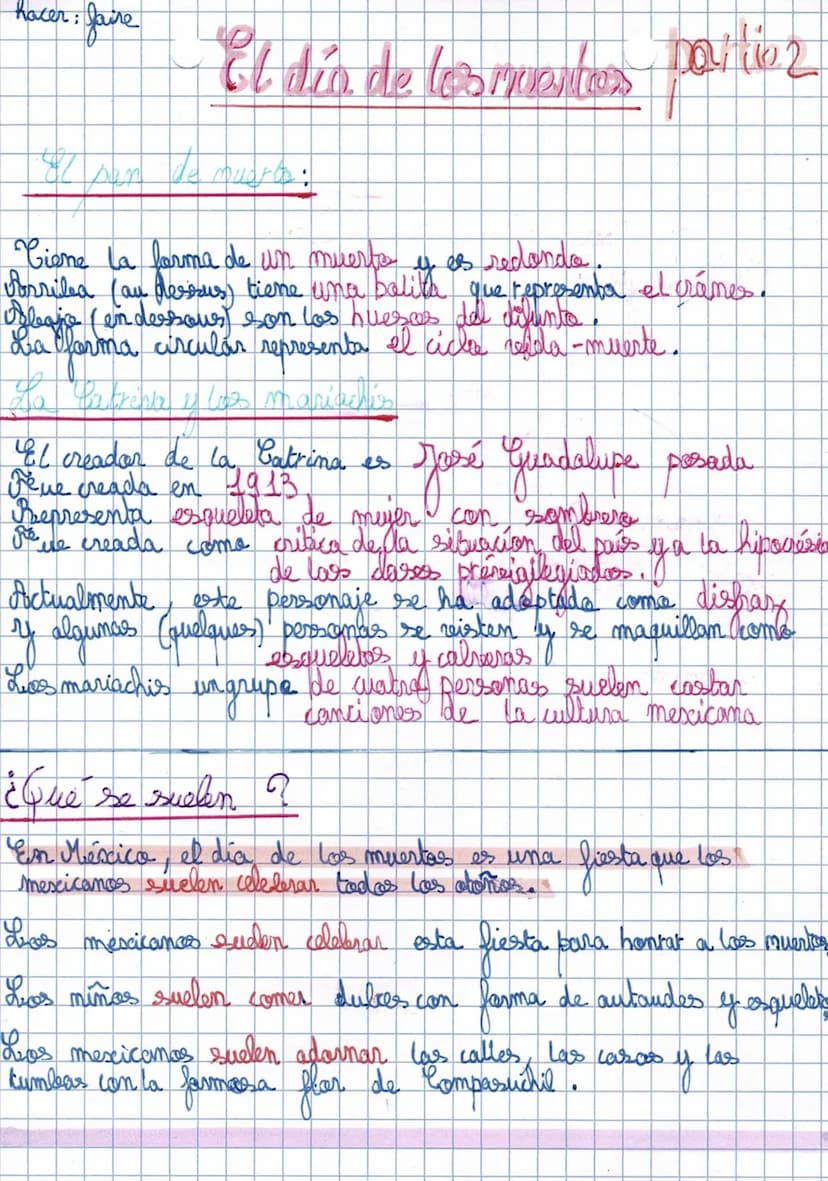 hacer : faire
El día de los muertos partie 2
El pan de muerto :
Tiene la forma de un muerto y es redondo.
Arriba (au dessus) tiene una bolita que representa el cráneo.
Abajo (en dessous) son los huesos del difunto.
La forma circular representa el ciclo vida-muerte.
La Catrina y los mariachis
El creador de la Catrina es José Guadalupe posada
Fue creada en 1913
Representa esqueleto de mujer con sombrero
Fue creada como crítica de la situación del país y a la hipocrésia
de las clases privilegiadas.
Actualmente, este personaje se ha adoptado como disfraz
y algunas (quelques) personas se visten y se maquillan como
esqueletos y calaveras
Los mariachis un grupo de cuatro personas suelen cantar
canciones de la cultura mexicana
¿Qué se suelen ?
En México, el día de los muertos es una fiesta que los
mexicanos suelen celebrar todos los otoños.
Los mexicanos suelen celebrar esta fiesta para honrar a los muertos
Los niños suelen comer dulces con forma de autaudes y esqueletos
Los mexicanos suelen adornar las calles, las casas y las
tumbas con la famosa flor de Compasuchil.